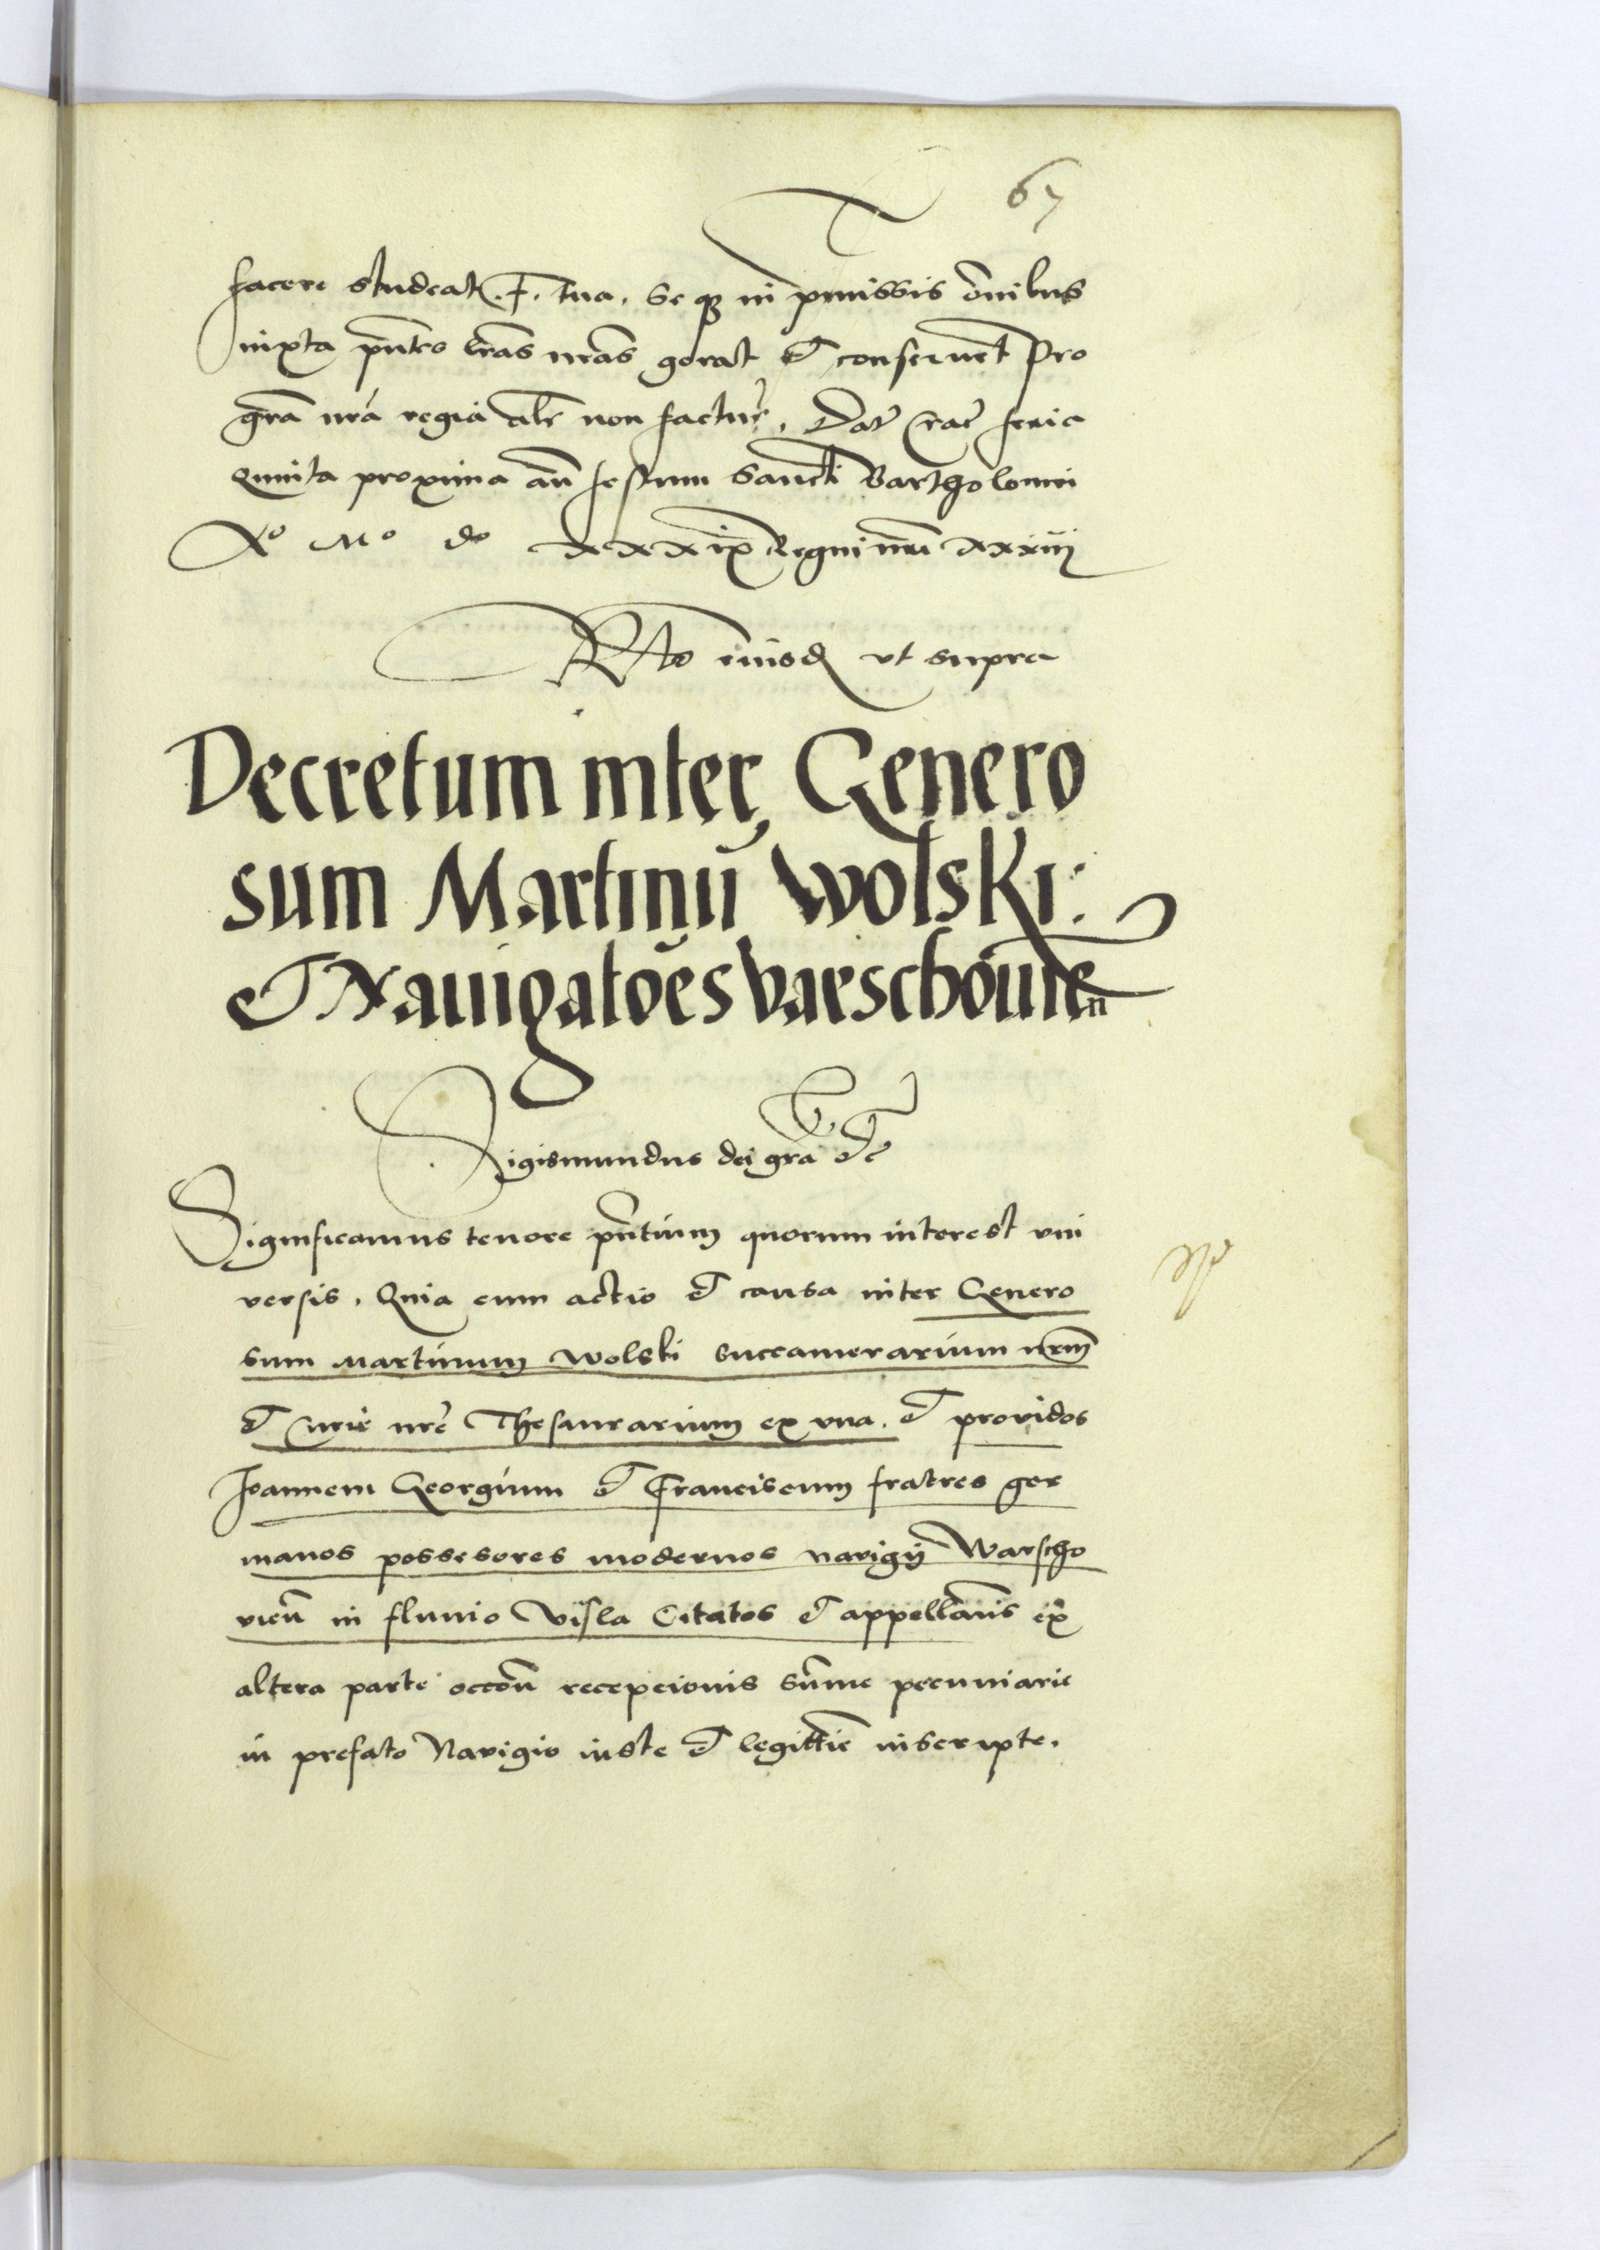 67
facere studeat. F. tua. Se q3 in pmissis om̃ibus
iuxta pñtes lr̃as nr̃as gerat et conseruet Pro
gr̃a nr̃a regia alr̃ non factur̃. Dat̃ Crac̃ feria
quinta proxima añ festum Sancti Bartholomei
Aº Mº dº xxxix Regni nr̃i xxxiij
Rto eiusd ut supra
Decretum inter Genero
sum Martinũ Wolski:
et Nauigatoẽs Varschouieñ
Sigismundus dei gr̃a etc̃
Significamus tenore pñtium quorum interest vni
versis. Quia cum actio et causa inter Genero
sum Martinum Wolski Succamerarium nr̃m
et Curie nr̃e Thesaurarium ex vna. et providos
Joannem Georgium et Franciscum fratres ger
manos possesores modernos navigij Warscho
vieñ in fluuio Visla Citatos et appellañtis ex
altera parte occoñ recepcionis sum̃e pecuniarie
in prefato Navigio iuste et legittiẽ inscripte.